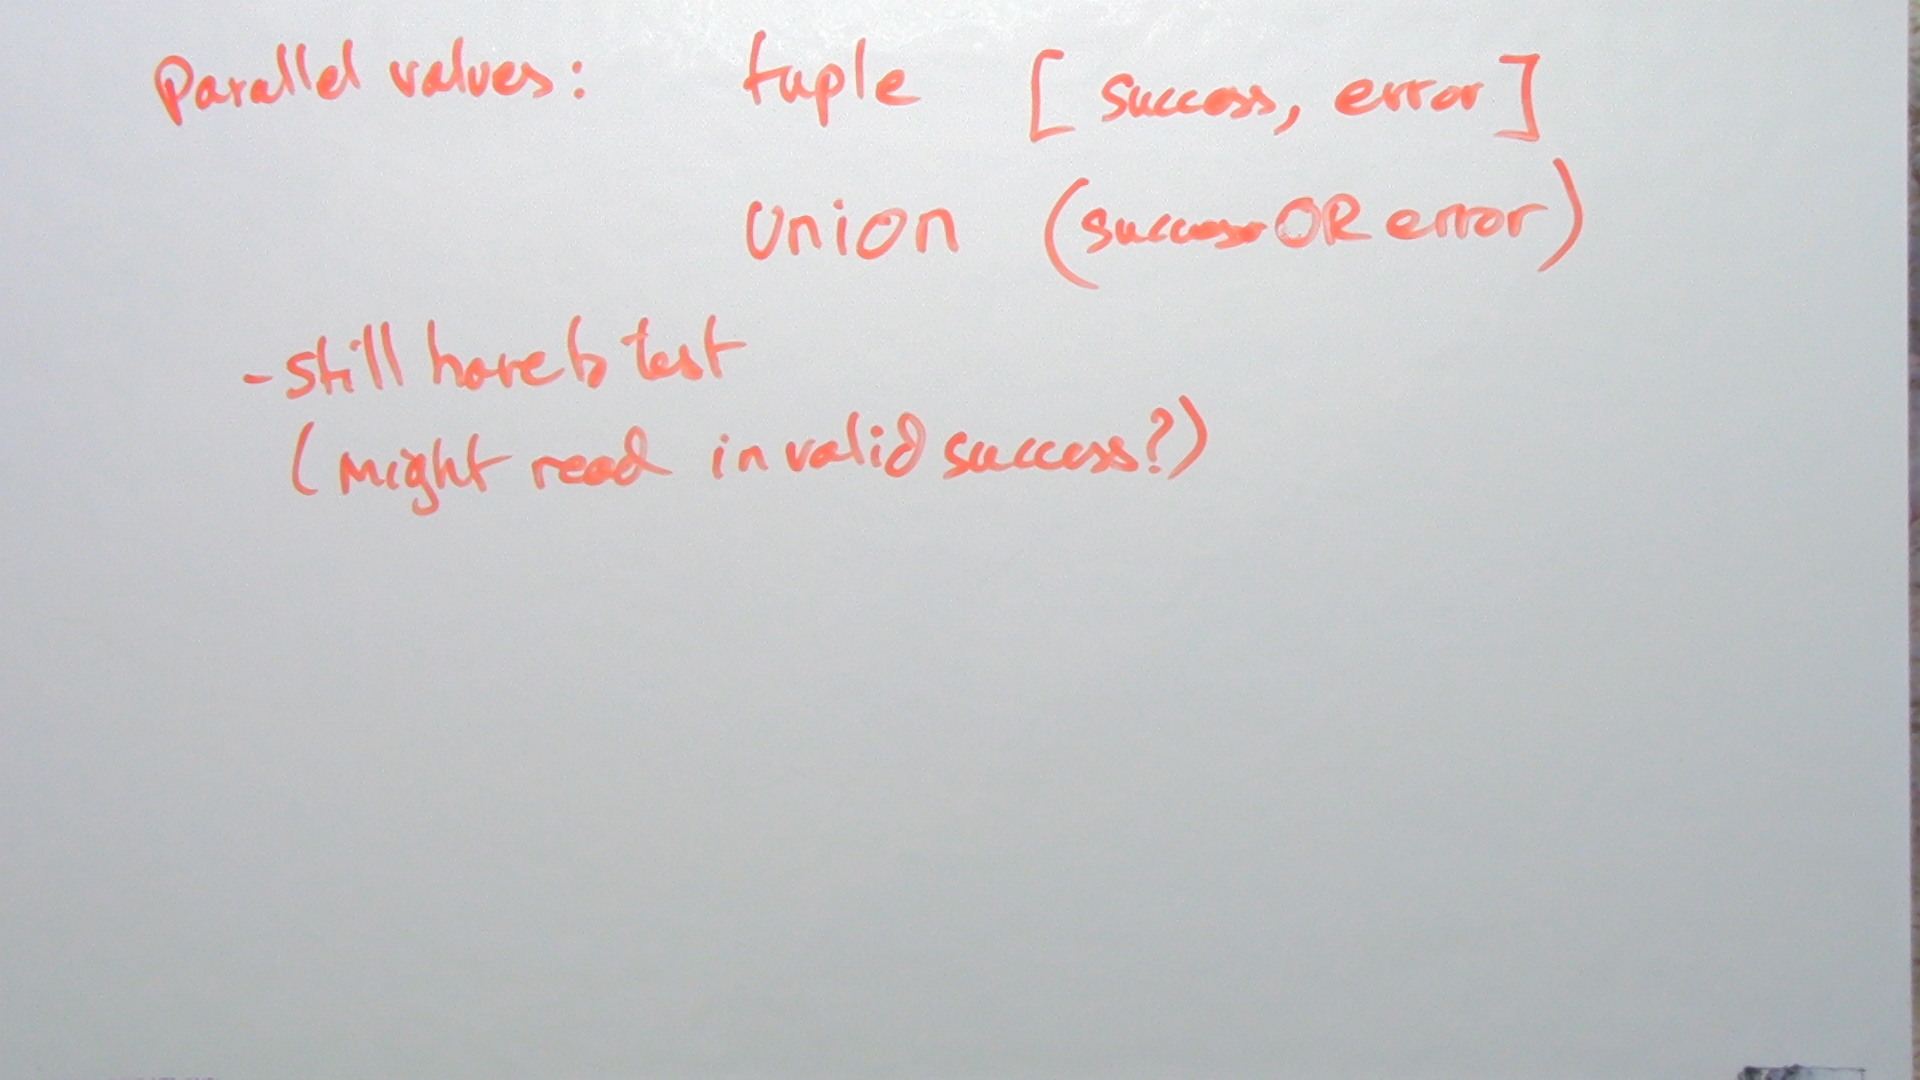 Parallel values: tuple [success, error]
union (success OR error)
- still have to test
(might read invalid success?)